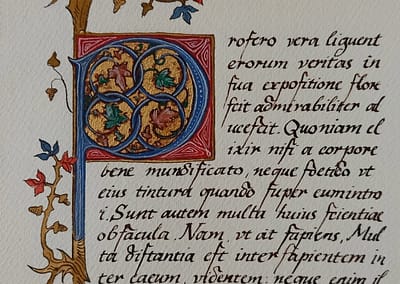 Profero vera liquent
erorum veritas in
sua expositione flore
scit admirabiliter al
uescit. Quoniam el
ixir nisi a corpore
bene mundificato, neque foetido vt
eius tintura quando super eumintro
i. Sunt autem multa huius scientiae
obstacula. Nam, vt ait sapiens, Mul
ta distantia est inter sapientem in
ter caecum, videntem: neque enim il